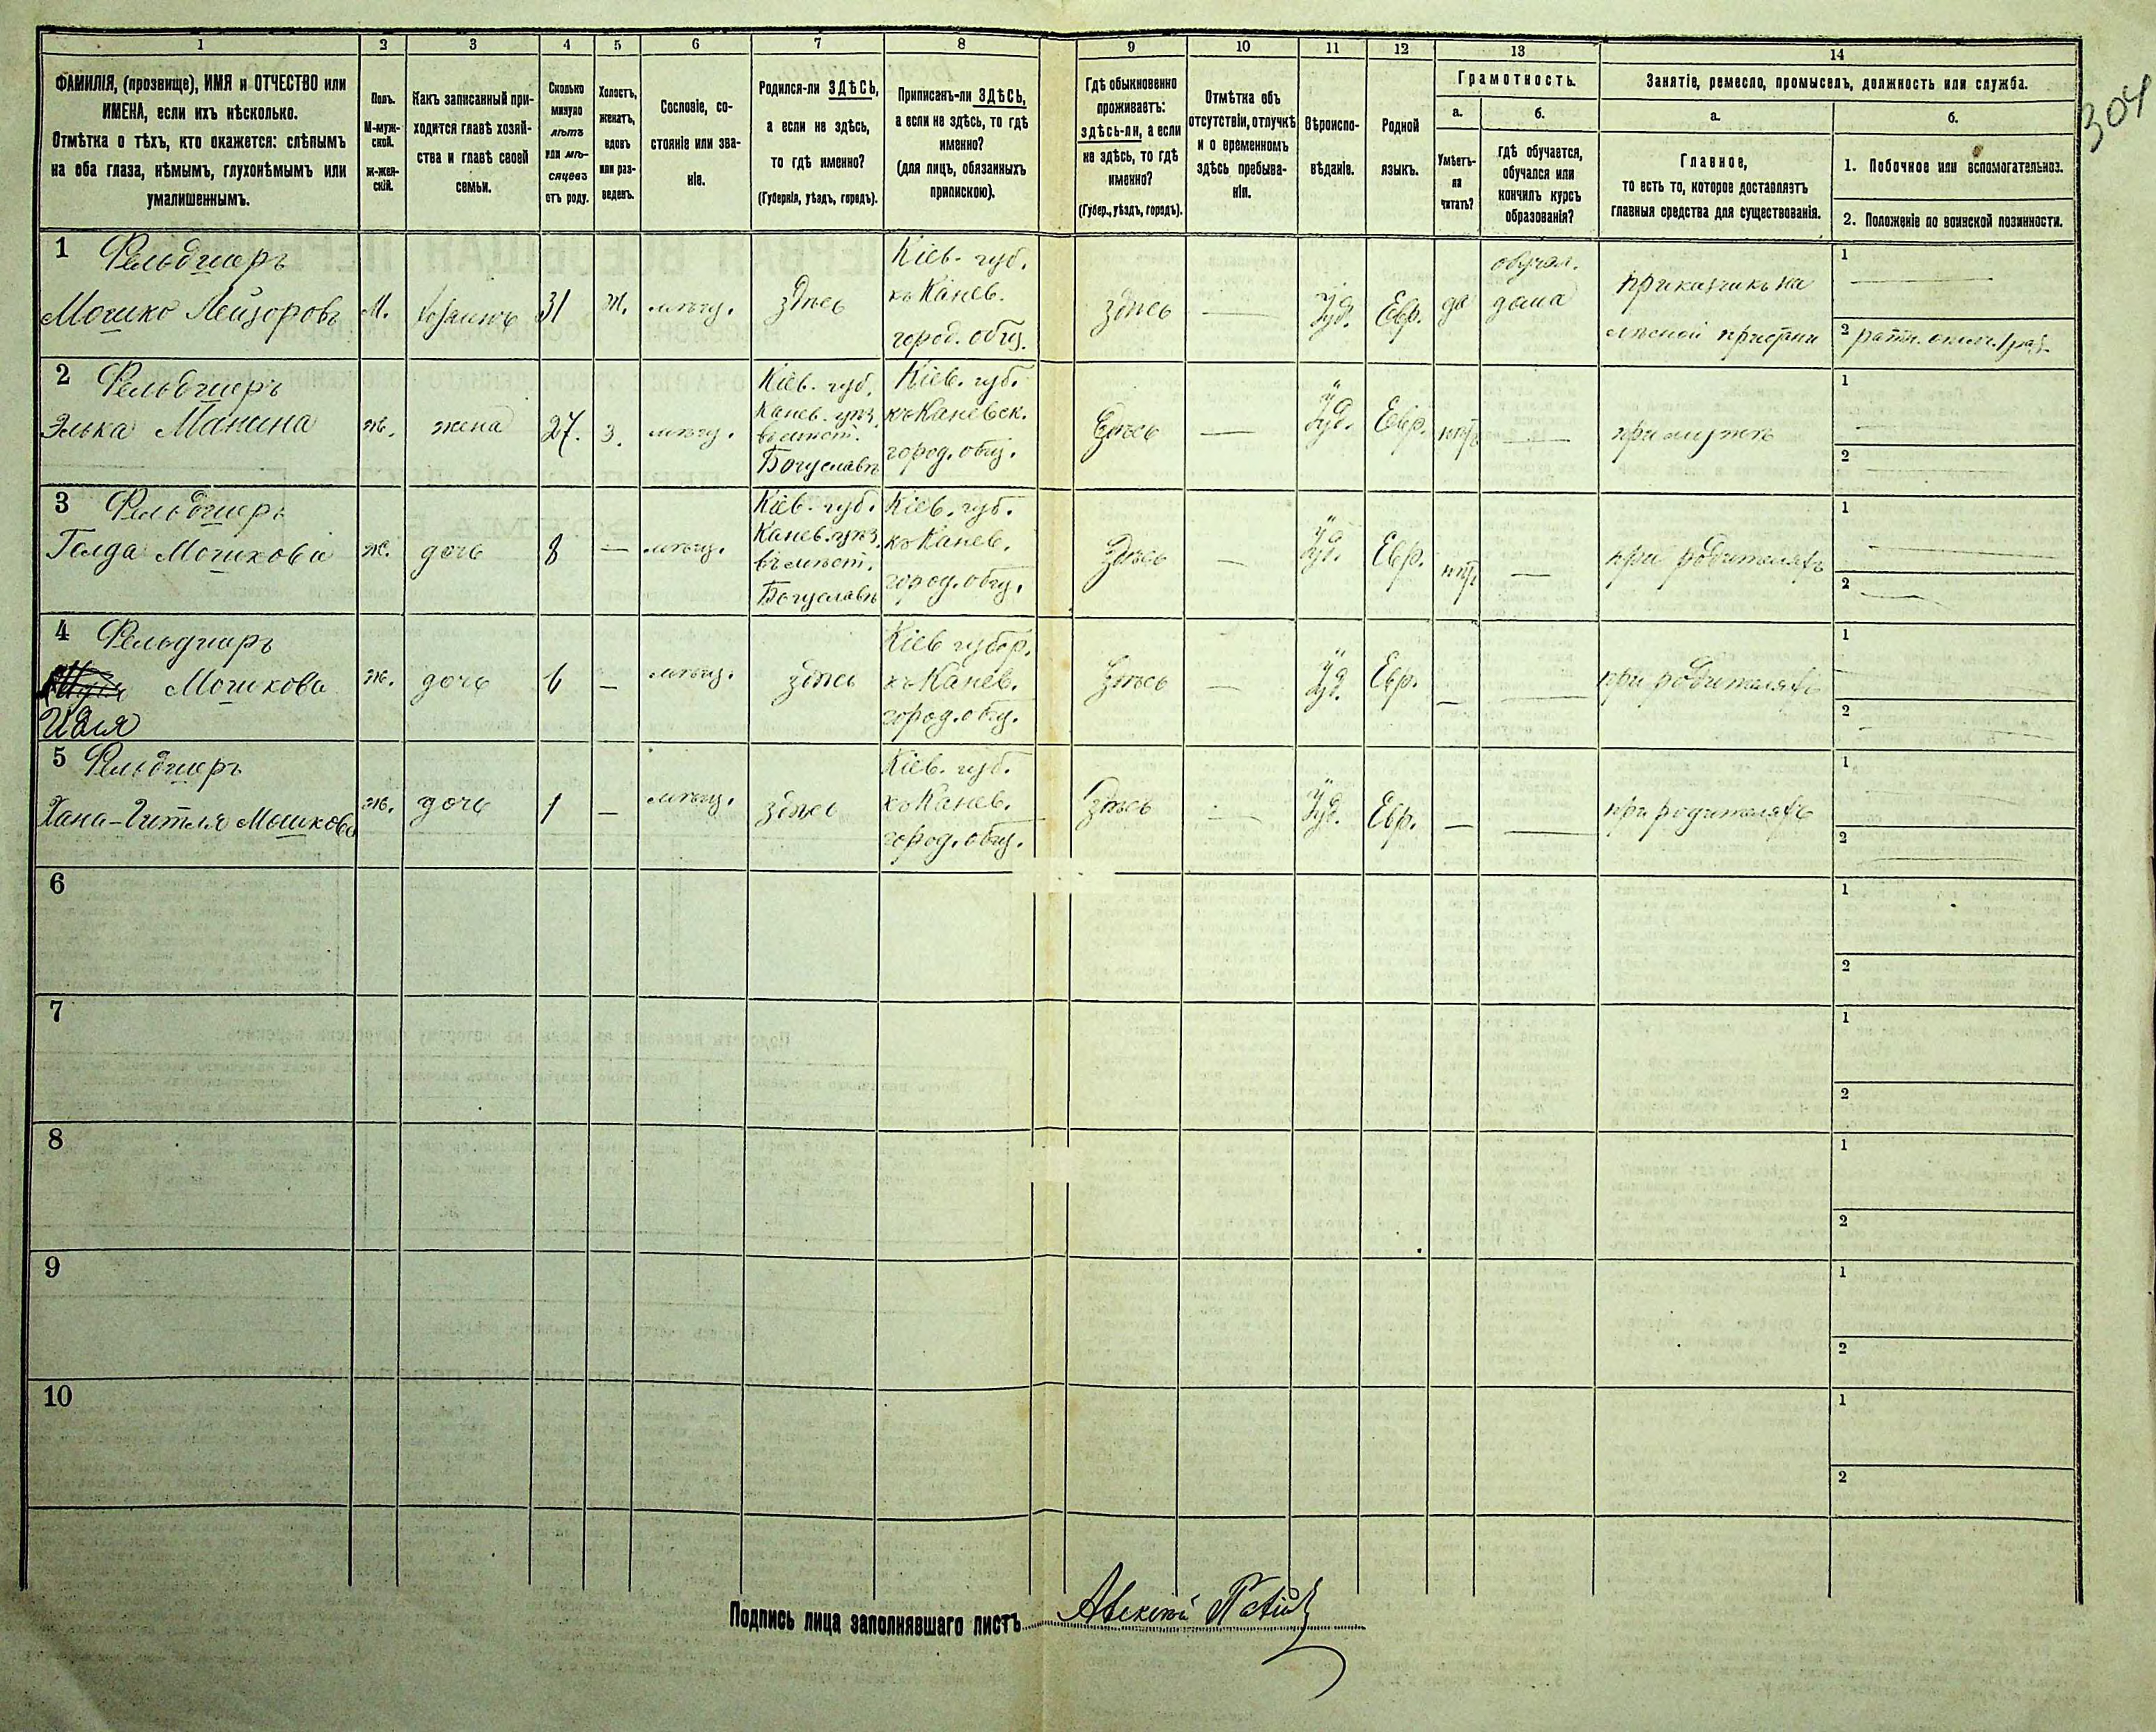 304
1 2 3 4 5 6 7 8 9 10 11 12 13 14
ФАМИЛІЯ, (прозвище), ИМЯ и ОТЧЕСТВО или
ИМЕНА, если ихъ нѣсколько.
Отмѣтка о тѣхъ, кто окажется: слѣпымъ
на оба глаза, нѣмымъ, глухонѣмымъ или
умалишеннымъ.
Полъ.
М-муж-
ской.
ж-жен-
скій.
Какъ записанный при-
ходится главѣ хозяй-
ства и главѣ своей
семьи.
Сколько
минуло
лѣтъ
или мѣ-
сяцевъ
отъ роду.
Холостъ,
женатъ,
вдовъ
или раз-
веденъ.
Сословіе, со-
стояніе или зва-
ніе.
Родился-ли ЗДѢСЬ,
а если не здѣсь,
то гдѣ именно?
(Губернія, уѣздъ, городъ).
Приписанъ-ли ЗДѢСЬ,
а если не здѣсь, то гдѣ
именно?
(для лицъ, обязанныхъ
припискою).
Гдѣ обыкновенно
проживаетъ:
здѣсь-ли, а если
не здѣсь, то гдѣ
именно?
(Губер., уѣздъ, городъ).
Отмѣтка объ
отсутствіи, отлучкѣ
и о временномъ
здѣсь пребыва-
ніи.
Вѣроиспо-
вѣданіе.
Родной
языкъ.
Грамотность.
а.
Умѣетъ-
ли
читать?
б.
гдѣ обучается,
обучался или
кончилъ курсъ
образованія?
Занятіе, ремесло, промыселъ, должность или служба.
а.
Главное,
то есть то, которое доставляетъ
главныя средства для существованія.
б.
1. Побочное или вспомогательное.
2. Положеніе по воинской повинности.
1 Фельдшеръ
Мошко Лейзоровъ
М.
хозяинъ
31
Ж.
мѣщ.
здѣсь
Кіев. губ.
къ Канев.
город. общ.
здѣсь
—
Іуд.
Евр.
да
обучал.
дома
приказчикъ на
лѣсной пристани
1 —
2
2 Фельдшеръ
Элька Манина
ж.
жена
27.
з.
мѣщ.
Кіев. губ.
Канев. уѣз.
въ мѣст.
Богуславѣ
Кіев. губ.
къ Каневск.
город. общ.
здѣсь
—
Іуд.
Евр.
нѣтъ
—
при мужѣ
1 —
2 —
3 Фельдшеръ
Голда Мошкова
ж.
дочь
8
—
мѣщ.
Кіев. губ.
Канев. уѣз.
въ мѣст.
Богуславѣ
Кіев. губ.
къ Канев.
город. общ.
здѣсь
—
Іуд.
Евр.
нѣтъ
—
при родителяхъ
1 —
2 —
4 Фельдшеръ
Мошкова
Идля
ж.
дочь
6
—
мѣщ.
здѣсь
Кіев губер.
къ Канев.
город. общ.
здѣсь
—
Іуд.
Евр.
—
—
при родителяхъ
1 —
2 —
5 Фельдшеръ
Хана-Гитля Мошкова
ж.
дочь
1
—
мѣщ.
здѣсь
Кіев. губ.
къ Канев.
город. общ.
здѣсь
—
Іуд.
Евр.
—
—
при родителяхъ
1 —
2 —
6
1
2
7
1
2
8
1
2
9
1
2
10
1
2
Подпись лица заполнявшаго листъ